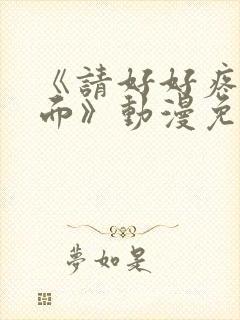 《請好好疼
而》動漫免
夢如是